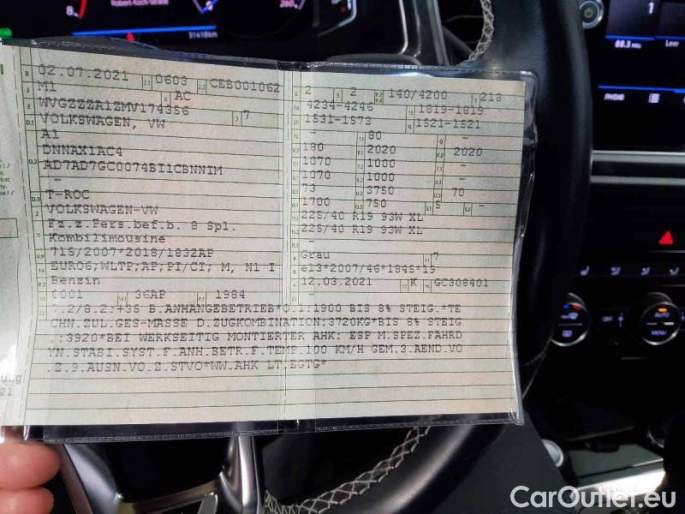 8
31418 km
260
1
88.3 Mi.
Leer
PHONE
02.07.2021 0603 CEB001062
M1 AC
WVGZZZA1ZMV174356 7
VOLKSWAGEN, VW
A1
DNNAX1AC4
AD7AD7GC0074BI1CBNNIM
-
T-ROC
VOLKSWAGEN-VW
Fz.z.Pers.bef.b. 8 Spl.
Kombilimousine
715/2007*2018/1832AP
EURO6;WLTP;AP;PI/CI; M, N1 I
Benzin
0001 36AP 1984
2 2 140/4200 218
4234-4246 1819-1819
1531-1573 1521-1521
- 80 -
180 2020 2020
1070 1000 -
1070 1000 -
73 3750 70
1700 750 5 -
225/40 R19 93W XL
225/40 R19 93W XL
-
Grau 7
e13*2007/46*1845*19
12.03.2021 K GC308401
7.2/8.2:+35 B.ANHÄNGEBETRIEB*O.1:1900 BIS 8% STEIG.*TE
CHN.ZUL.GES-MASSE D.ZUGKOMBINATION:3720KG*BIS 8% STEIG
.:3920*BEI WERKSEITIG MONTIERTER AHK: ESP M.SPEZ.FAHRD
YN.STABI.SYST.F.ANH.BETR.F.TEMP.100 KM/H GEM.3.AEND.VO
.Z.9.AUSN.VO.Z.STVO*WW.AHK LT.EGTG*
CarOutlet.eu